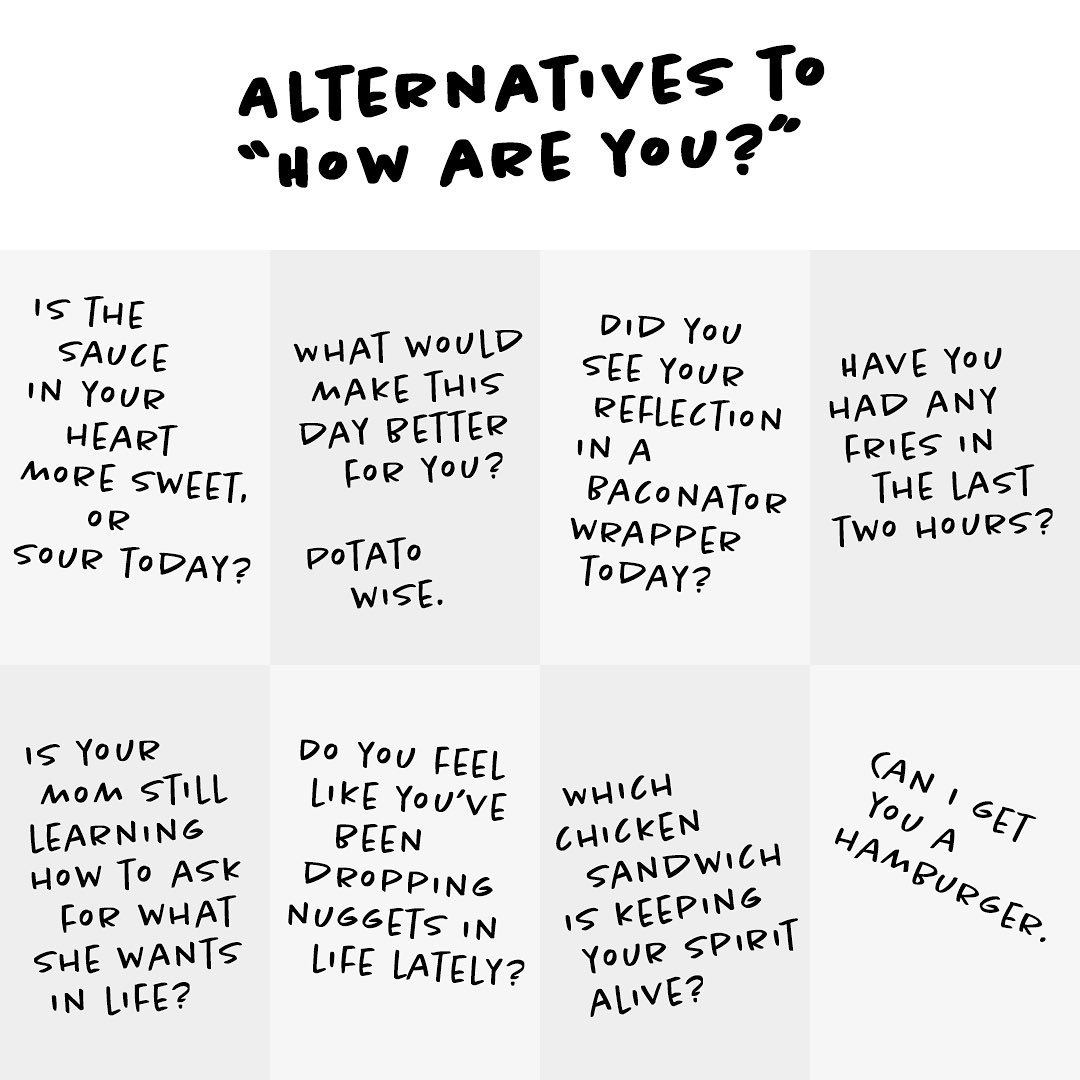 ALTERNATIVES TO
"HOW ARE YOU?"
IS THE
SAUCE
IN YOUR
HEART
MORE SWEET,
OR
SOUR TODAY?
WHAT WOULD
MAKE THIS
DAY BETTER
FOR YOU?
POTATO
WISE.
DID YOU
SEE YOUR
REFLECTION
IN A
BACONATOR
WRAPPER
TODAY?
HAVE YOU
HAD ANY
FRIES IN
THE LAST
TWO HOURS?
IS YOUR
MOM STILL
LEARNING
HOW TO ASK
FOR WHAT
SHE WANTS
IN LIFE?
DO YOU FEEL
LIKE YOU'VE
BEEN
DROPPING
NUGGETS IN
LIFE LATELY?
WHICH
CHICKEN
SANDWICH
IS KEEPING
YOUR SPIRIT
ALIVE?
CAN I GET
YOU A
HAMBURGER.